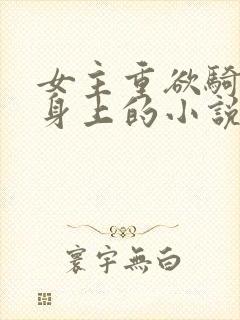 女主重欲騎
身上的小說
寰宇無白